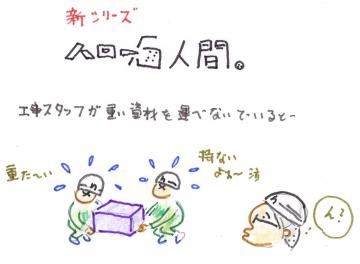 新シリーズ
人間。
工事スタッフが重い資材を運べないでいると…
重た〜い
持ない
ん?